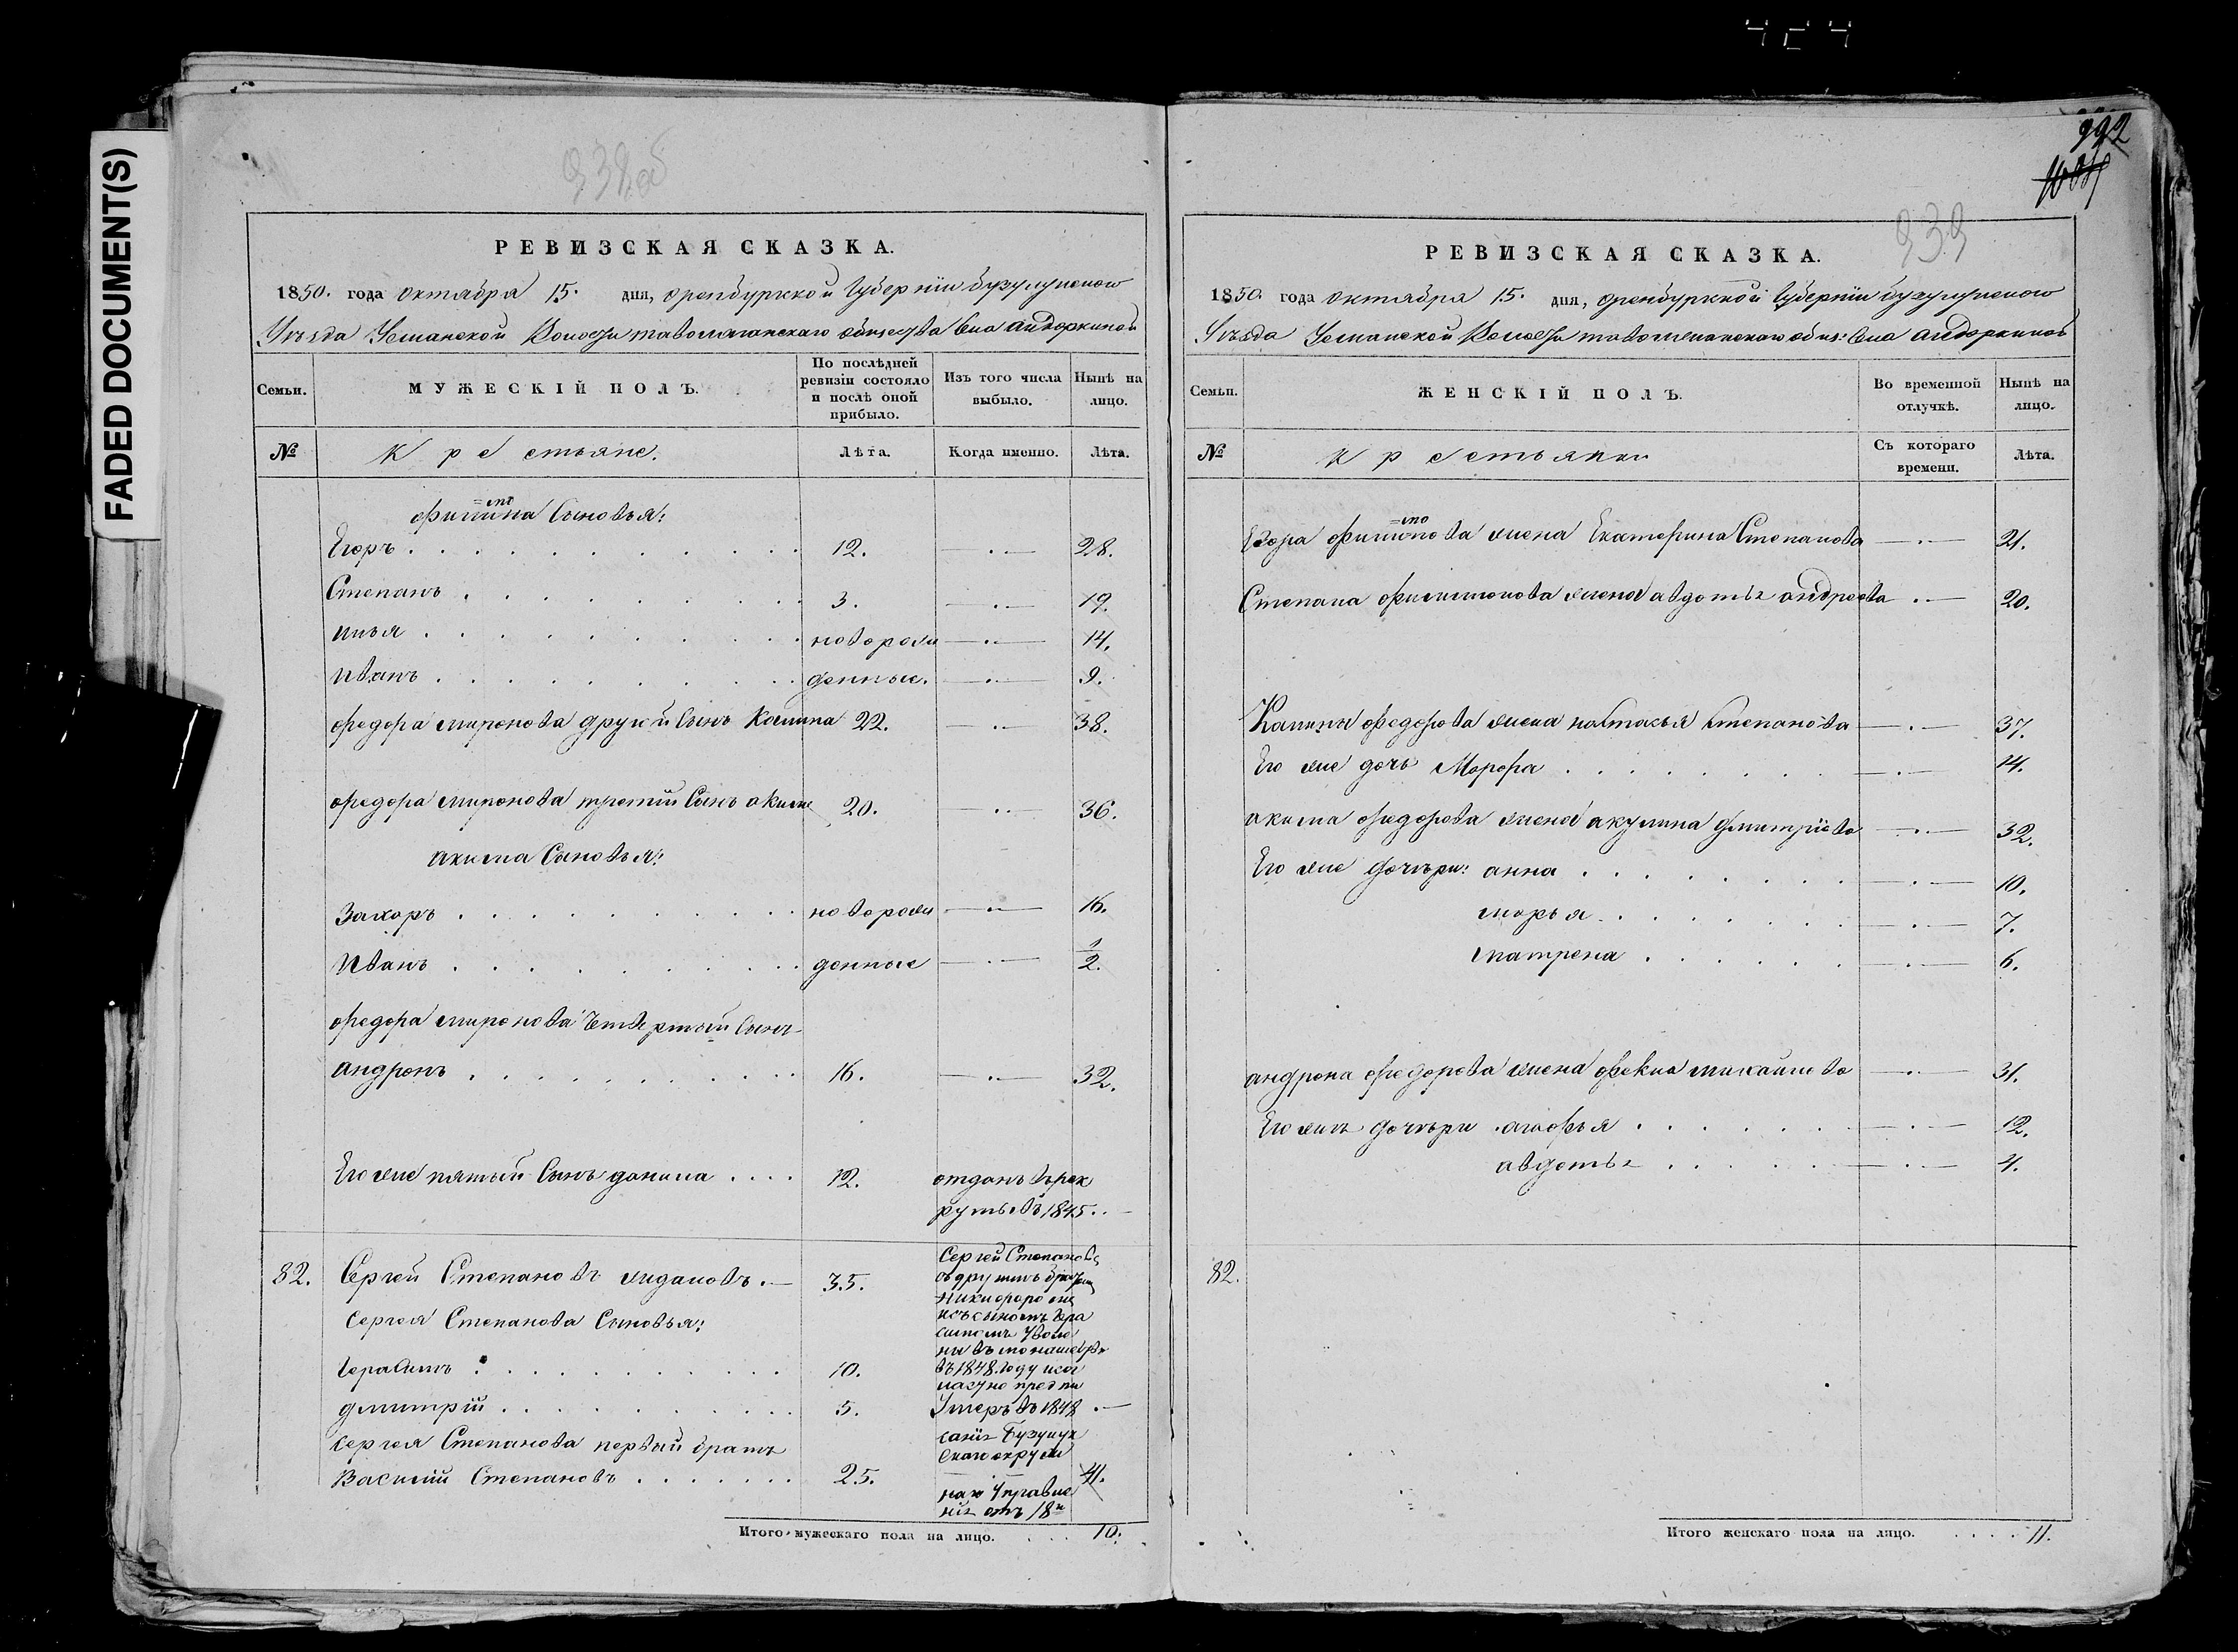 FADED DOCUMENT(S)
939об
РЕВИЗСКАЯ СКАЗКА.
1850. года октября 15. дня, оренбуркской Губерніи бузулуцкого
Уѣзда Усманской Волости таволжанскаго общества Села андоркиной
Семьи.
МУЖЕСКІЙ ПОЛЪ.
По послѣдней ревизіи состояло и послѣ оной прибыло.
Изъ того числа выбыло.
Нынѣ на лицо.
№
Крестьяне.
Лѣта.
Когда именно.
Лѣта.
Сыновья:
Егоръ 12. 28.
Степанъ 3. 19.
илья новорож 14.
иванъ денные. 9.
федора миронова другой Сынъ Калина 22. 38.
федора миронова третій Сынъ аким 20. 36.
акима Сыновья:
Захоръ новорож 16.
иванъ денные 1/2.
федора миронова Четвертый Сынъ
андронъ 16. 32.
Его же пятый Сынъ данила 12. отданъ въ рек
рутывъ 1845.
82. Сергей Степановъ жидановъ. 35.
Сергей Степановъ
съ другимъ братом
Никифором
исъ сыномъ Гера
симомъ Уволе
ны въ
въ 1848. году исог
ласно предпи
сергея Степанова Сыновья:
Герасимъ 10.
дмитрій 5. Умеръ въ 1848
саніе Бузулук
скаго окруж
сергея Степанова первый братъ
Василій Степановъ 25. 41.
наго Управле
нія отъ 18
Итого мужескаго пола на лицо. 10.
992
939
РЕВИЗСКАЯ СКАЗКА.
1850. года октября 15. дня, оренбуркской Губерніи бузулуцкого
Уѣзда Усманской Волости таволжанскаго общ: Села андоркиной
Семьи.
ЖЕНСКІЙ ПОЛЪ.
Во временной отлучкѣ.
Нынѣ на лицо.
№
Крестьянки
Съ котораго времени.
Лѣта.
Егора жена Екатерина Степанова 21.
Степана филимонова жена авдотья андреева 20.
Калины федорова жена настасья степанова 37.
Его же дочь Марфа 14.
акима федорова жена акулина дмитріева 32.
Его же дочѣри: анна 10.
марья 7.
матрена 6.
андрона федорова жена фекла михайлова 31.
Его же дочѣри агафья 12.
авдотья 4.
82.
Итого женскаго пола на лицо. 11.